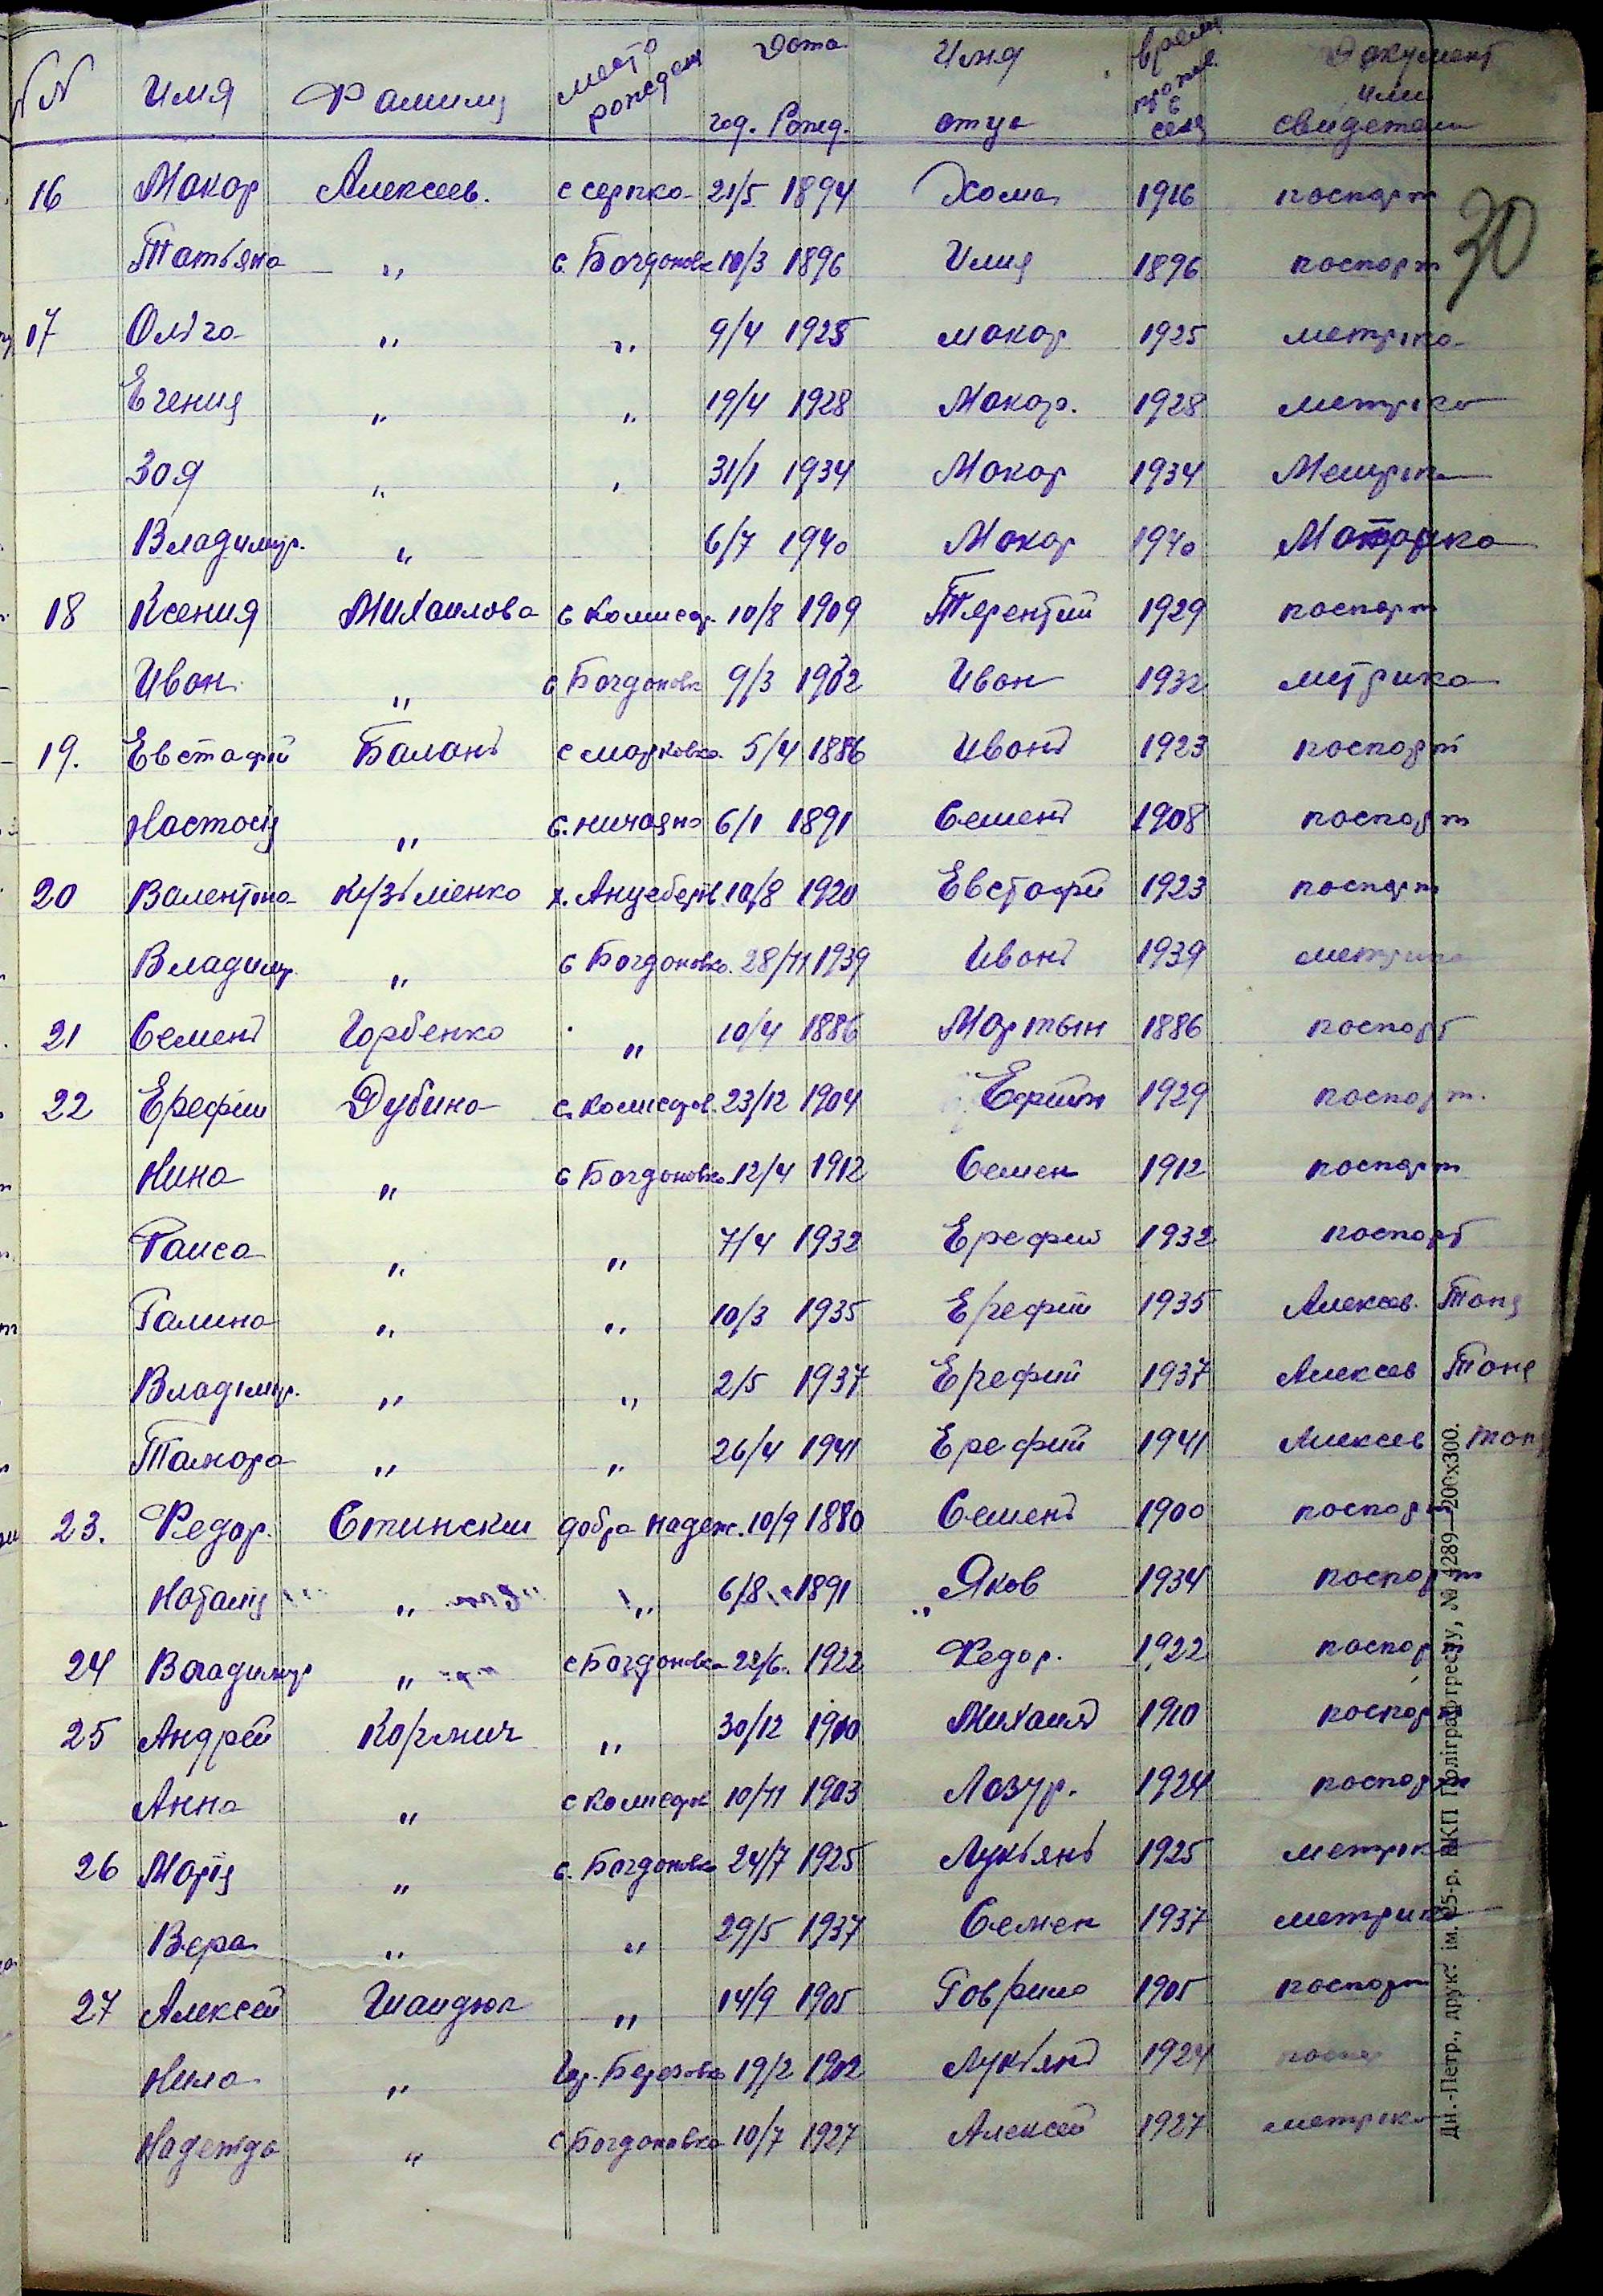 NN Имя Фамилия место рожден Дата год. Рожд. Имя отца время прожив. в селе Документ или свидетели
30
16 Макар Алексеев. с серпка 21/5 1894 Хома 1916 паспорт
Татьяна " с. Богдановка 10/3 1896 Илия 1896 паспорт
17 Ольга " " 9/4 1925 макар 1925 метрика
Егения " " 19/4 1928 Макар. 1928 метрика
Зоя " " 31/1 1934 Макар 1934 Метрика
Владимир. " 6/7 1940 Макар 1940 Матрика
18 Ксения Михаилова с Комисар. 10/8 1909 Терентий 1929 паспорт
Иван " с Богдановк 9/3 1932 Иван 1932 митрика
19. Евстафий Баланъ с марковка. 5/4 1886 Иванъ 1923 паспорт
Настасия " с. ничаяно 6/1 1891 Семенъ 1908 паспорт
20 Валентина Кузьменко х. 10/8 1920 Евстафи 1923 паспорт
Владимир. " с Богдановка. 28/11 1939 Иванъ 1939 метрика
21 Семенъ Горбенко " 10/4 1886 Мартын 1886 паспорт
22 Ерефий Дубина с. Комисаров. 23/12 1904 1929 паспорт.
Нина " с Богдановка 12/4 1912 Семен 1912 паспорт
Раиса " " 7/4 1932 Ерефий 1932 паспорт
Галина " " 10/3 1935 Ерефий 1935 Алексев. Таня
Владимир. " " 2/5 1937 Ерефий 1937 Алексев Таня
Тамара " " 26/4 1941 Ерефий 1941 Алексев
23. Федор. Стински добра надеж. 10/9 1880 Семенъ 1900 паспорт
Наталия " " 6/8 1891 Яков 1934 паспорт
24 Владимир " с Богдановка 22/6. 1922 Федор. 1922 паспорт
25 Андрей Кормич " 30/12 1900 Михаилъ 1910 паспорт
Анна " с Комисаров 10/11 1903 Лазур. 1924 паспорт
26 Мария " с. Богдановка 24/7 1925 Лукъянъ 1925 метрика
Вера " " 29/5 1937 Семен 1937 метрика
27 Алексей Шандюк " 14/9 1905 Гаврило 1905 паспорт
Нила " Гр. Березовка 19/2 1902 Лукъянъ 1924
Надежда " с Богдановка 10/7 1927 Алексей 1927 метрика
Дн.-Петр., друк. ім. 25-р. ВКП Поліграфтресту, № 4289—200х300.